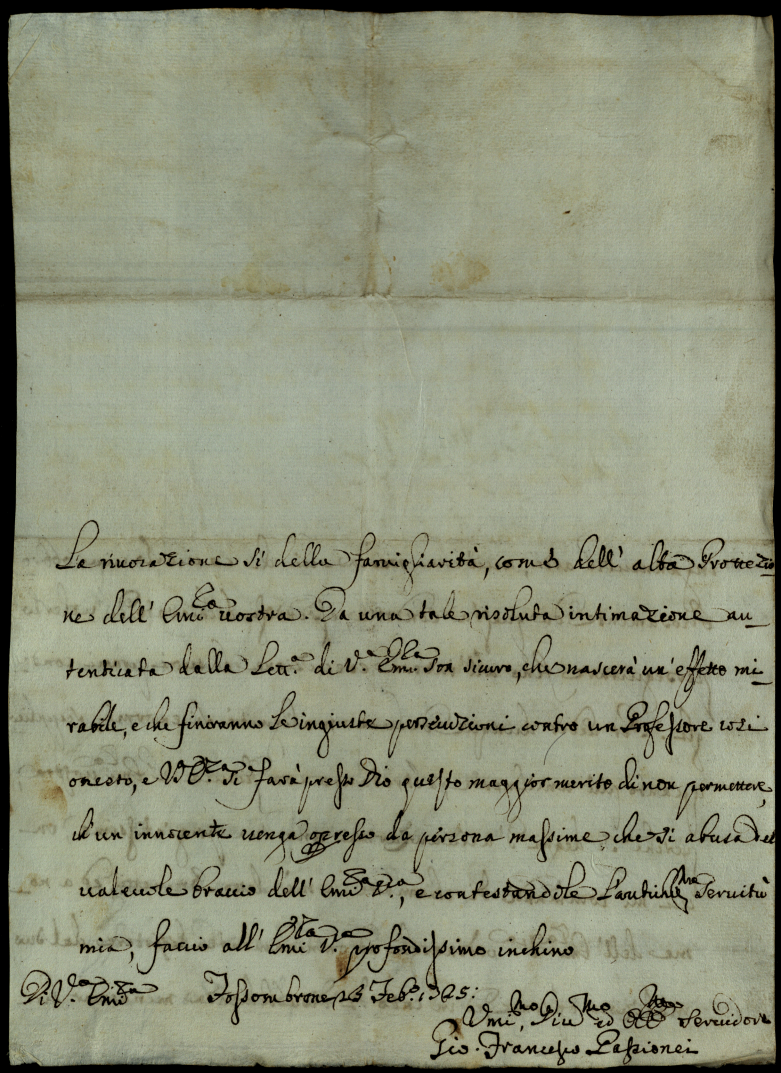 La rivocazione sì della famigliarità, come dell' alta Protezio
ne dell' Em:za vostra. Da una tale risoluta intimazione au_
tenticata dalla Lett.a di V.a Em:za son sicuro, che nascerà un' effetto mi_
rabile, e che finiranno le ingiuste persecuzioni contro un Professore così
onesto, e si farà presso Dio questo maggior merito di non permettere,
ch'un innocente venga opresso da persona massime, che si abusa del
valevole braccio dell' Em:za V.a, e contestandole l'antich:ma servitù
mia, faccio all' Em:za V.a profondissimo inchino
Di V.a Em:za Fossombrone 23 Feb.o 1725:
Umi:mo, Div:mo ed Obb:mo servidore
Gio. Francesco Passionei